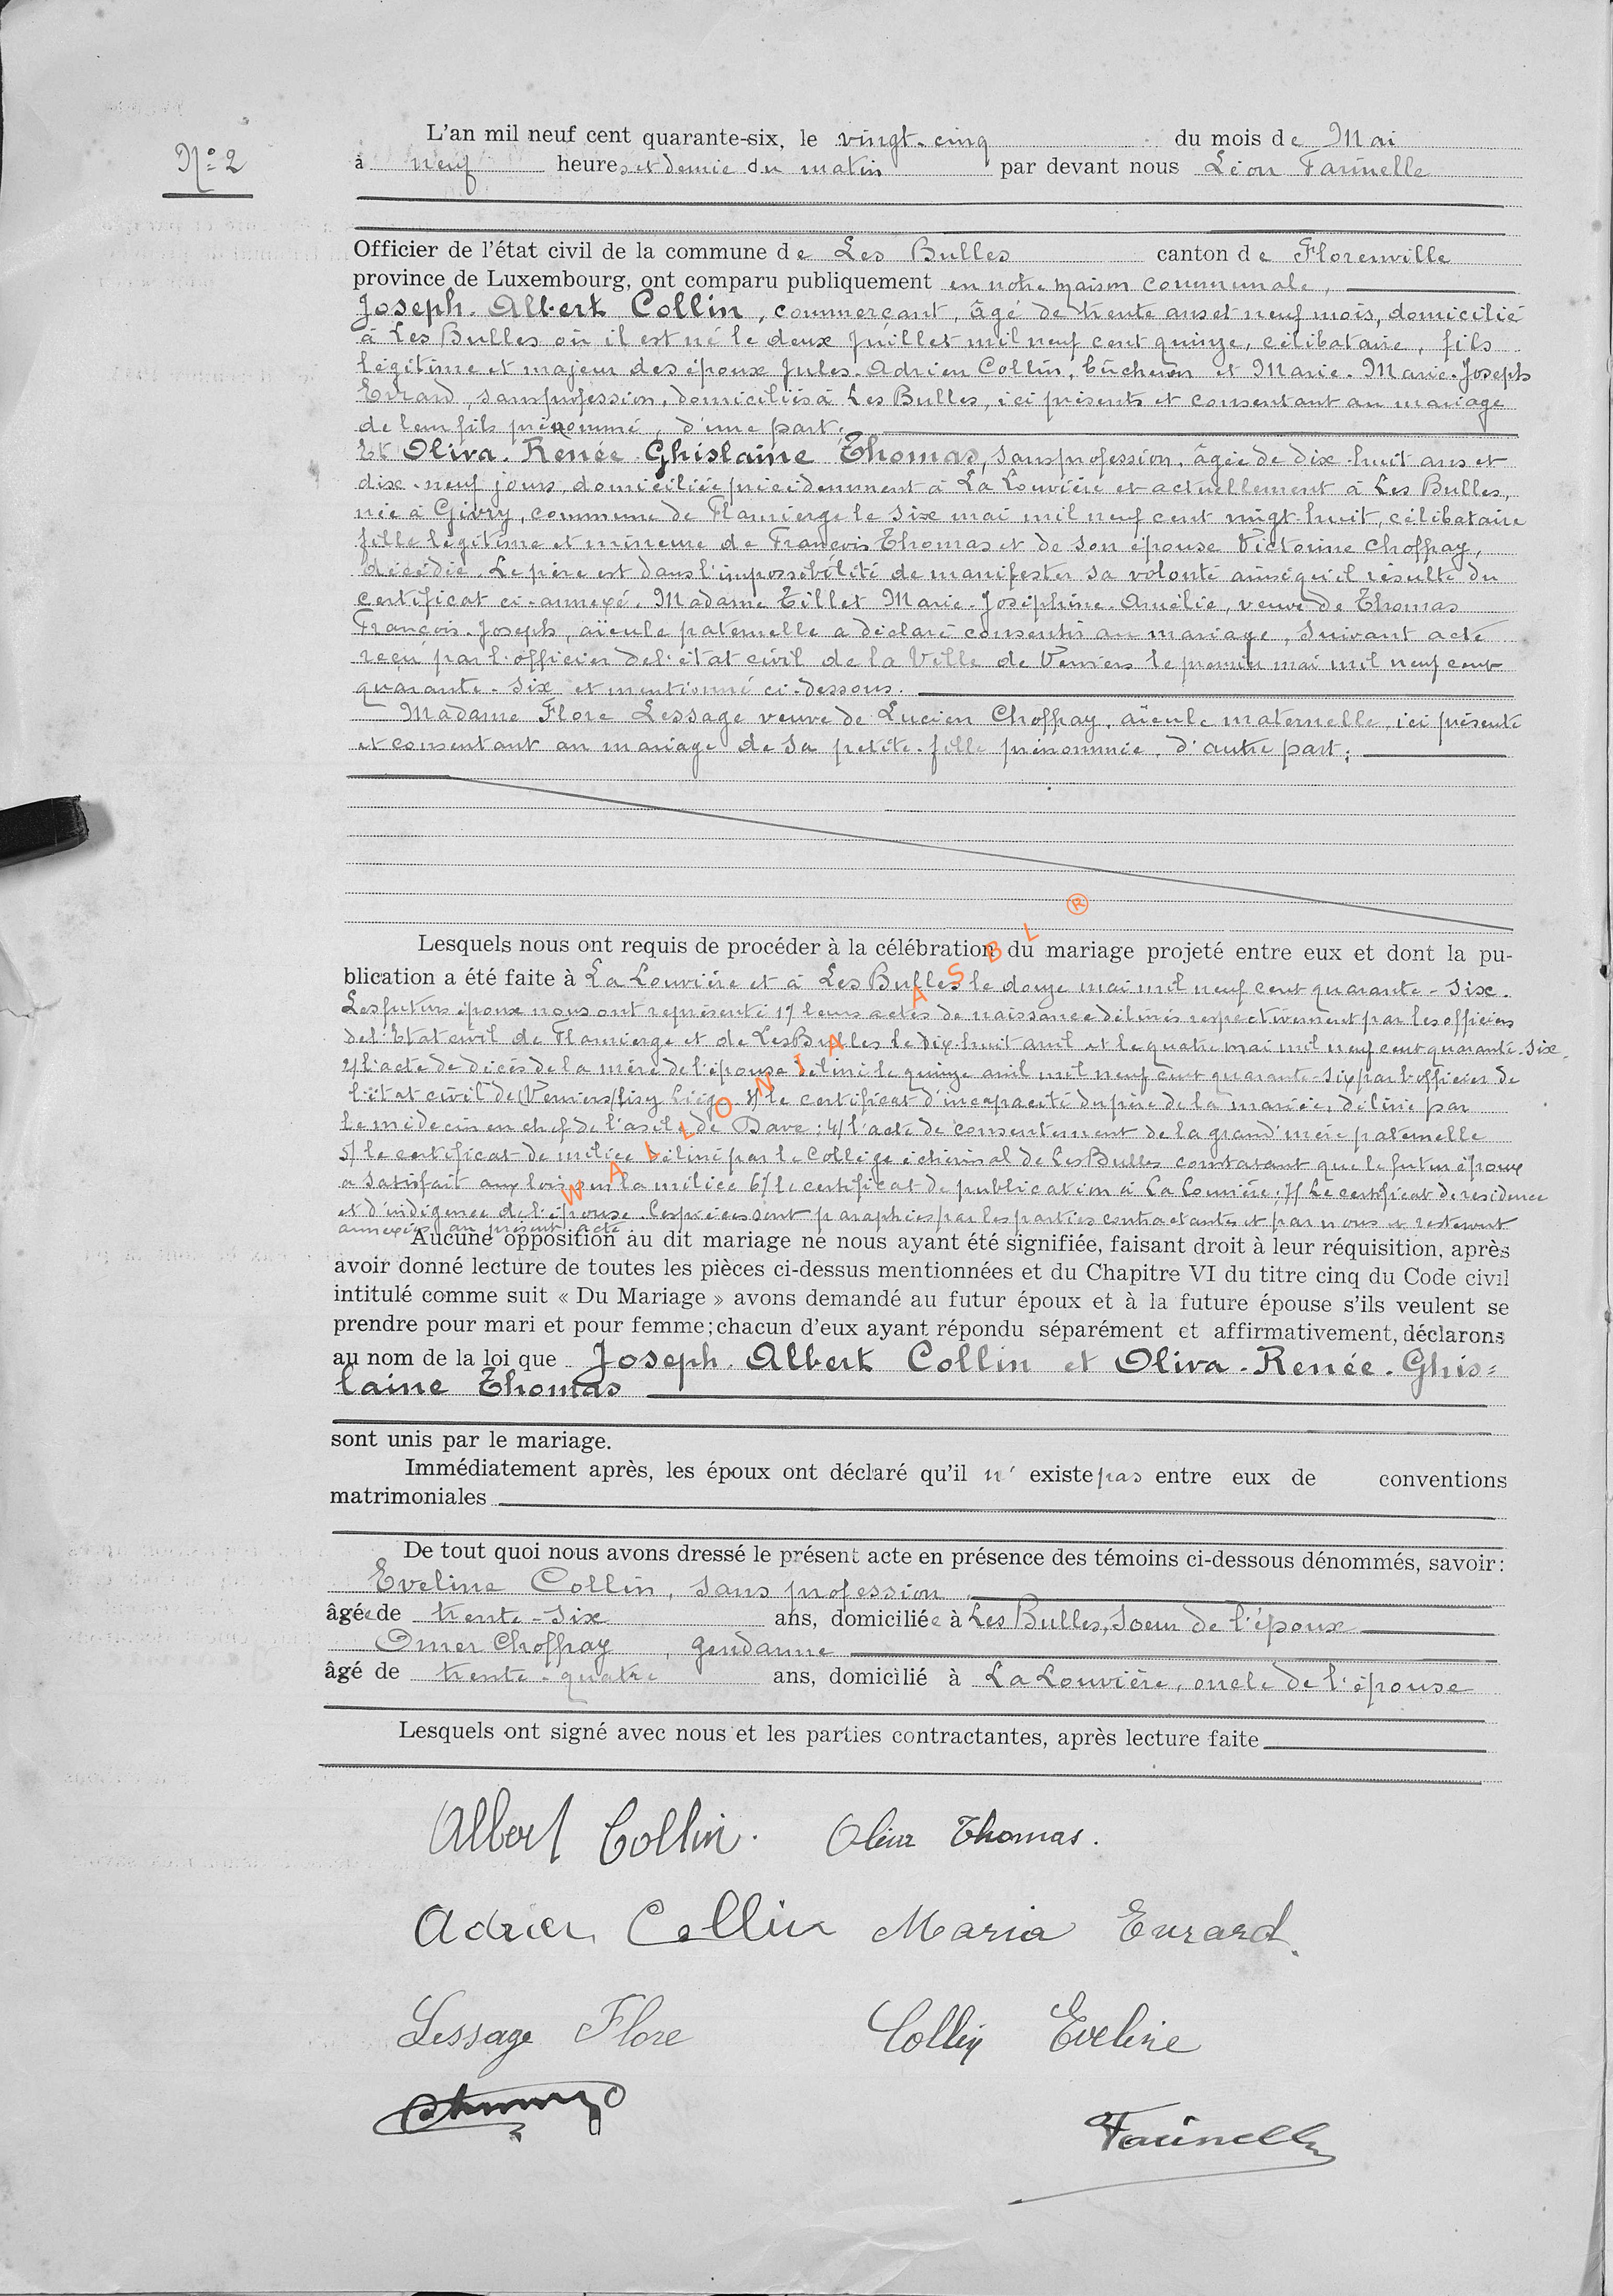 N° 2
L'an mil neuf cent quarante-six, le vingt-cinq du mois de Mai
à neuf heures et demie du matin par devant nous Léon Faiinelle
Officier de l'état civil de la commune de Les Bulles canton de Florenville
province de Luxembourg, ont comparu publiquement en notre maison communale,
Joseph-Albert Collin, commerçant, âgé de trente ans et neuf mois, domicilié
à Les Bulles où il est né le deux Juillet mil neuf cent quinze, célibataire, fils
légitime et majeur des époux Jules-Adrien Collin, bûcheron et Marie-Marie-Joseph
Evrard, sans profession, domiciliés à Les Bulles, ici présents et consentant au mariage
de leur fils prénommé, d'une part;
Et Oliva-Renée-Ghislaine Thomas, sans profession, âgée de dix-huit ans et
dix-neuf jours, domiciliée précédemment à La Louvière et actuellement à Les Bulles,
née à Givry, commune de Flamierge le six mai mil neuf cent vingt-huit, célibataire
fille légitime et mineure de François Thomas et de son épouse Victorine Choffray,
décédée. Le père est dans l'impossibilité de manifester sa volonté ainsi qu'il résulte du
certificat ci-annexé. Madame Tillet Marie-Joséphine-Amélie, veuve de Thomas
François-Joseph, aïeule paternelle a déclaré consentir au mariage, suivant acte
reçu par l'officier de l'état civil de la Ville de Verviers le premier mai mil neuf cent
quarante-six et mentionné ci-dessous.
Madame Flore Lessage veuve de Lucien Choffray, aïeule maternelle, ici présente
et consentant au mariage de sa petite-fille prénommée, d'autre part;
Lesquels nous ont requis de procéder à la célébration du mariage projeté entre eux et dont la pu-
blication a été faite à La Louvière et à Les Bulles le douze mai mil neuf cent quarante-six.
Les futurs époux nous ont représenté 1/ leurs actes de naissance délivrés respectivement par les officiers
de l'Etat civil de Flamierge et de Les Bulles le dix-huit avril et le quatre mai mil neuf cent quarante-six.
2/ l'acte de décès de la mère de l'épouse délivré le quinze avril mil neuf cent quarante-six par l'officier de
l'état civil de Verviers Liège 3/ le certificat d'incapacité du père de la mariée, délivré par
le médecin en chef de l'asile de Dave; 4/ l'acte de consentement de la grand'mère paternelle
5/ le certificat de milice délivré par le Collège échevinal de Les Bulles constatant que le futur époux
a satisfait aux lois sur la milice 6/ le certificat de publication à La Louvière; 7/ Le certificat de résidence
et d'indigence de l'épouse. Ces pièces sont paraphées par les parties contractantes et par nous et resteront
annexées au présent acte.
Aucune opposition au dit mariage ne nous ayant été signifiée, faisant droit à leur réquisition, après
avoir donné lecture de toutes les pièces ci-dessus mentionnées et du Chapitre VI du titre cinq du Code civil
intitulé comme suit « Du Mariage » avons demandé au futur époux et à la future épouse s'ils veulent se
prendre pour mari et pour femme; chacun d'eux ayant répondu séparément et affirmativement, déclarons
au nom de la loi que Joseph-Albert Collin et Oliva-Renée-Ghis=
laine Thomas
sont unis par le mariage.
Immédiatement après, les époux ont déclaré qu'il n'existe pas entre eux de conventions
matrimoniales
De tout quoi nous avons dressé le présent acte en présence des témoins ci-dessous dénommés, savoir:
Eveline Collin, sans profession,
âgée de trente-six ans, domiciliée à Les Bulles, soeur de l'époux
Omer Choffray, gendarme
âgé de trente-quatre ans, domicilié à La Louvière, oncle de l'épouse
Lesquels ont signé avec nous et les parties contractantes, après lecture faite
Albert Collin. Oliva Thomas.
Adrien Collin Maria Evrard.
Lessage Flore Collin Eveline
Faiinelle
WALLONIA ASBL ®